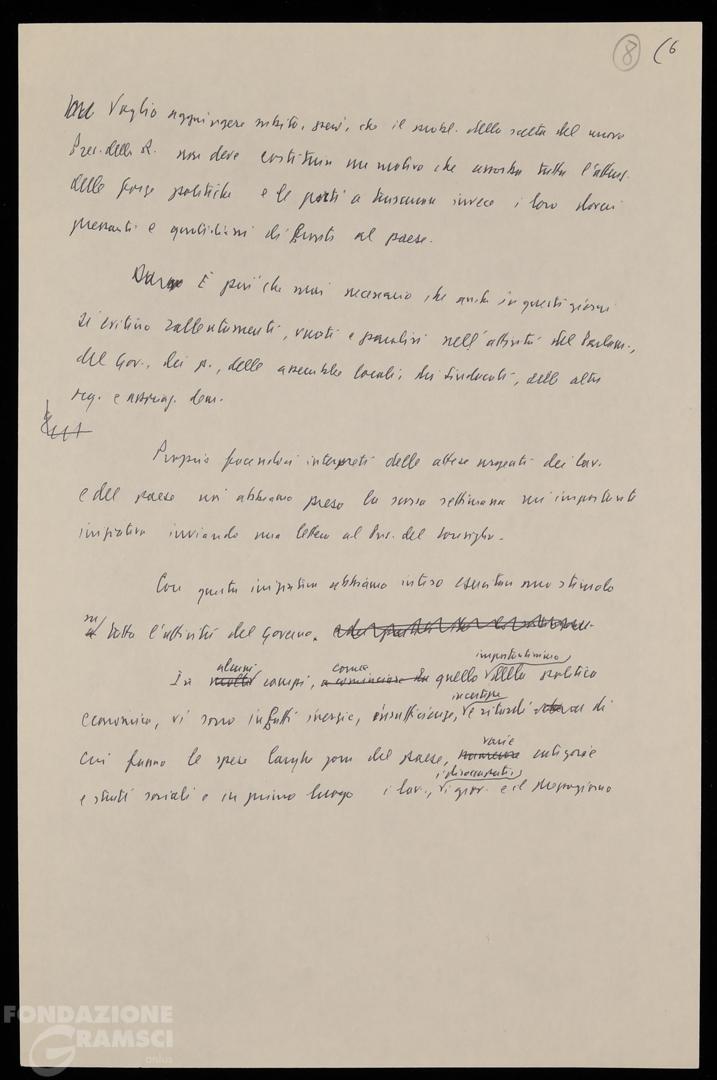 8 (6
Voglio aggiungere subito, però, che il probl. della scelta del nuovo
Pres. della R. non deve costituire un motivo che assorba tutta l'attenz.
delle forze politiche e le porti a trascurare invece i loro doveri
pressanti e quotidiani di fronte al paese.
È più che mai necessario che anche in questi giorni
si evitino rallentamenti, vuoti e paralisi nell'attività del Parlam.,
del Gov., dei p., delle assemblee locali, dei sindacati, delle altre
org. e dem.
Proprio facendoci interpreti delle attese urgenti dei lav.
e del paese noi abbiamo preso la scorsa settimana un'importante
iniziativa inviando una lettera al Pres. del Consiglio.
Con questa iniziativa abbiamo inteso esercitare uno stimolo
su tutta l'attività del Governo.
alcuni come importantissimo
In molti campi, a cominciare da quello della politica
incertezze
economica, vi sono infatti inerzie, insufficienze, e ritardi di
varie
cui fanno le spese larghe zone del paese, numerose categorie
i disoccupati,
e strati sociali e in primo luogo i lav., i giov. e il Mezzogiorno
FONDAZIONE
GRAMSCI
onlus